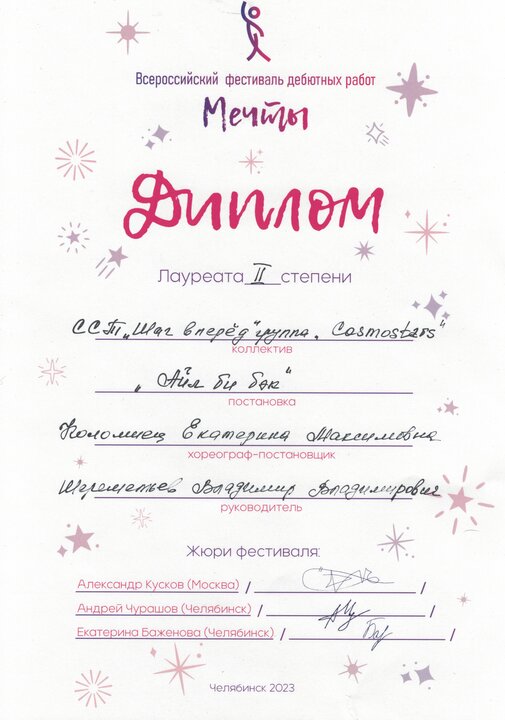 Всероссийский фестиваль дебютных работ
Мечты
Диплом
Лауреата II степени
ССТ „Шаг вперёд" группа „Cosmostars"
коллектив
„Айл би бэк"
постановка
Коломиец Екатерина Максимовна
хореограф-постановщик
Шереметьев Владимир Владимирович
руководитель
Жюри фестиваля:
Александр Кусков (Москва) / /
Андрей Чурашов (Челябинск) / /
Екатерина Баженова (Челябинск) / /
Челябинск 2023